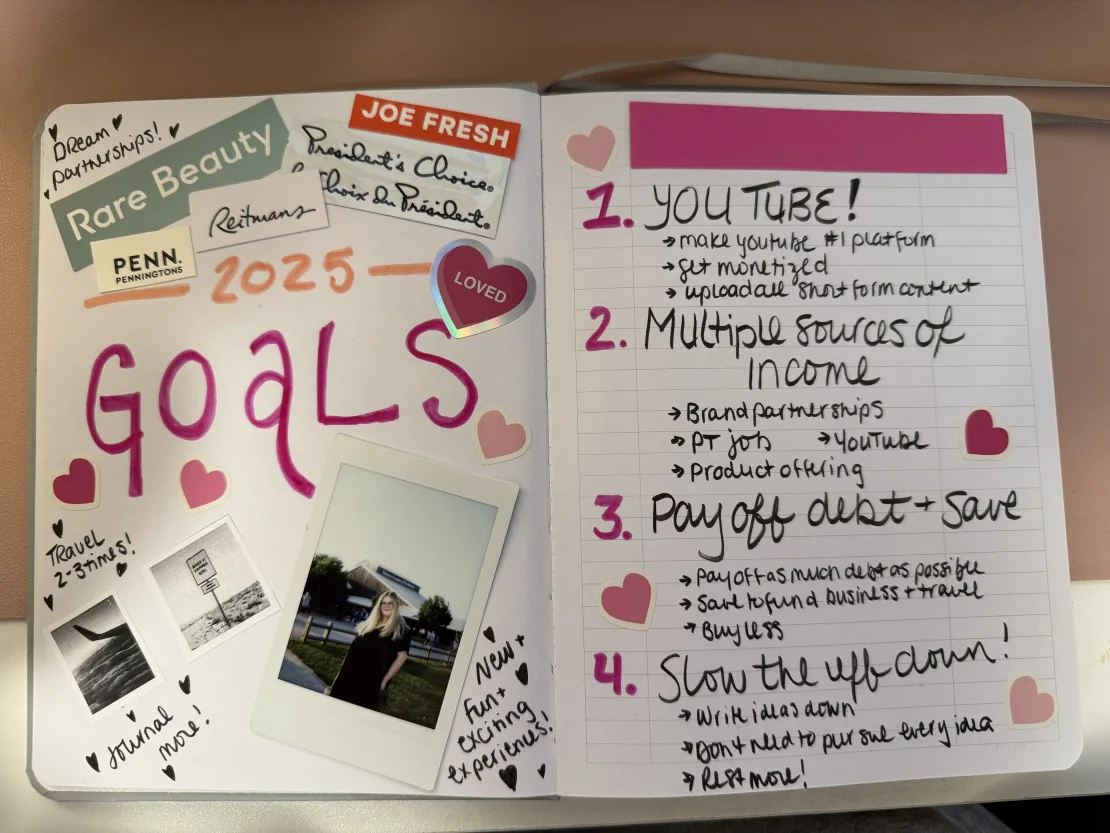 DREAM
partnerships!
Rare Beauty
JOE FRESH
President's Choice®
Choix du Président®
Reitmans
PENN.
PENNINGTONS
2025
LOVED
GOALS
TRAVEL
2-3 times!
Journal
more!
New +
Fun +
exciting
experiences!
1. YOUTUBE!
→ make youtube #1 platform
→ get monetized
→ upload all short form content
2. Multiple sources of
income
→ Brand partnerships
→ PT job → YouTube
→ Product offering
3. Pay off debt + save
→ Pay off as much debt as possible
→ Save to fund business + travel
→ Buy less
4. Slow the eff down!
→ Write ideas down
→ Don't need to pursue every idea
→ Rest more!